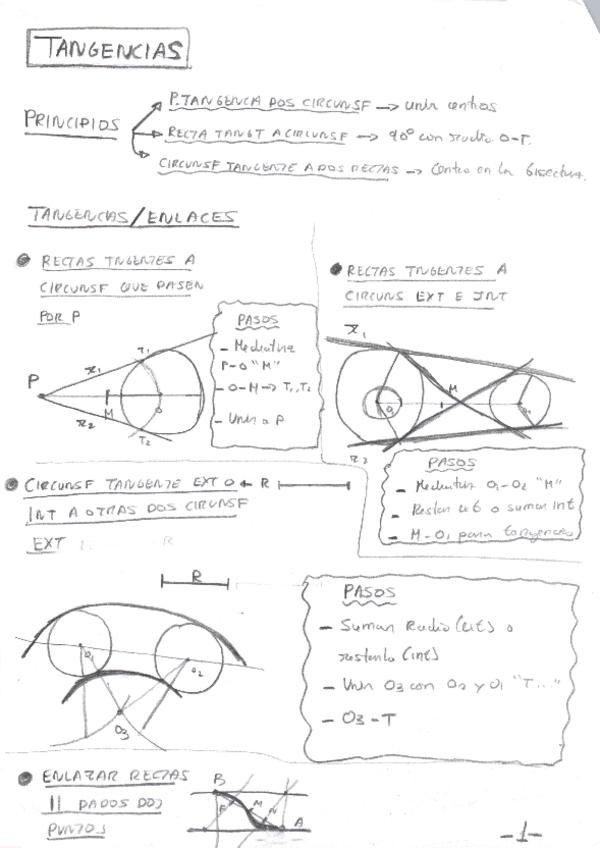 TANGENCIAS
PRINCIPIOS
P. TANGENCIA DOS CIRCUNSF → unir centros
RECTA TANGT A CIRCUNSF → 90° con radio O-T.
CIRCUNSF TANGENTE A DOS RECTAS → Centro en la bisectriz.
TANGENCIAS/ENLACES
RECTAS TNGENTES A
CIRCUNSF QUE PASEN
POR P
PASOS
- Mediatriz
P-O "M"
- O-M → T1, T2
- Unir a P
P
r1
r2
T1
T2
M
O
RECTAS TNGENTES A
CIRCUNS EXT E INT
r1
r2
M
O1
O2
PASOS
- Mediatriz O1-O2 "M"
- Restar ext o sumar int
- M-O1 para tangencias
CIRCUNSF TANGENTE EXT O ← R
INT A OTRAS DOS CIRUNSF
EXT
R
O1
O2
O3
PASOS
- Sumar Radio (ext) o
restarlo (int)
- Unir O3 con O2 y O1 "T..."
- O3-T
ENLAZAR RECTAS
|| DADOS DOS
PUNTOS
B
M
N
A
-1-